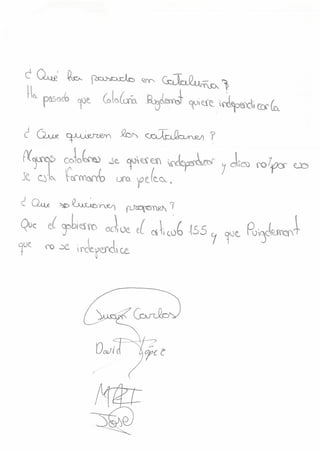 ¿ Qué ha pasado en Cataluña ?
Ha pasado que Cataluña Puigdemont quiere independizarla
¿ Que quieren los catalanes ?
Algunos catalanes se quieren independizar y otros no, por eso
se esta formando una pelea.
¿ Que soluciones propones ?
Que el gobierno active el articulo 155 y que Puigdemont
que no se independice
Juan Carlos
David López
José